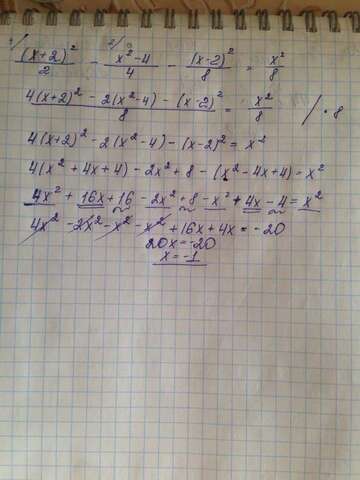 1/ 2/
(x+2)²/2 - x²-4/4 - (x-2)²/8 = x²/8
4(x+2)² - 2(x²-4) - (x-2)²/8 = x²/8 / · 8
4(x+2)² - 2(x²-4) - (x-2)² = x²
4(x² + 4x + 4) - 2x² + 8 - (x² - 4x + 4) = x²
4x² + 16x + 16 - 2x² + 8 - x² + 4x - 4 = x²
4x² - 2x² - x² - x² + 16x + 4x = -20
20x = -20
x = -1